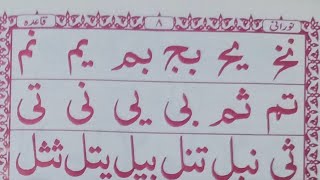 نورانی ٨ قاعدہ
نخ یح بج بم یم نم
تم ثم بی یی نی تی
ثی نبل تنل بیل یتل ثثل